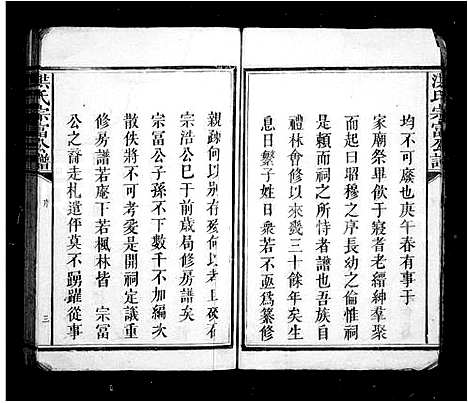 洪氏宗富公譜
均不可廢也庚午春有事于
家廟祭畢飲于寢者老縉紳羣聚
而起曰昭穆之序長幼之倫惟祠
是賴而祠之所恃者譜也吾族自
禮林會修以來幾三十餘年矣生
息日繁子姓日衆若不亟爲纂修
親疎何以別存歿何以考且天房
宗浩公已于前歲局修房譜矣
宗富公子孫不下數千不加編次
散佚將不可考爰是開祠定議重
修房譜若庵下若楓林皆 宗富
公之裔走札遺伻莫不踴躍從事
洪氏宗富公譜
序
三